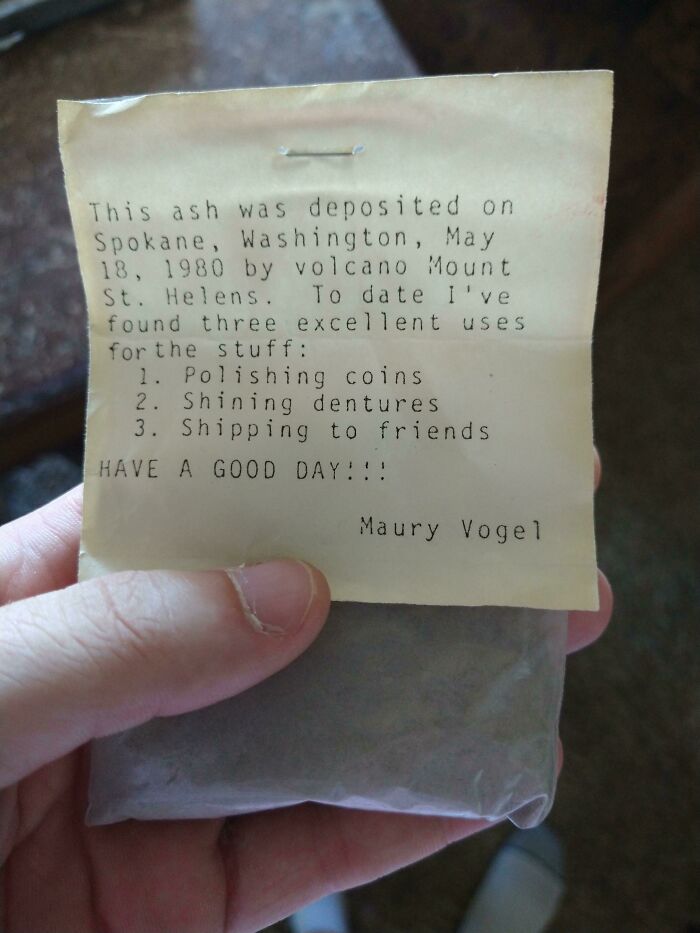 This ash was deposited on
Spokane, Washington, May
18, 1980 by volcano Mount
St. Helens.  To date I've
found three excellent uses
for the stuff:
1. Polishing coins
2. Shining dentures
3. Shipping to friends
HAVE A GOOD DAY!!!
Maury Vogel